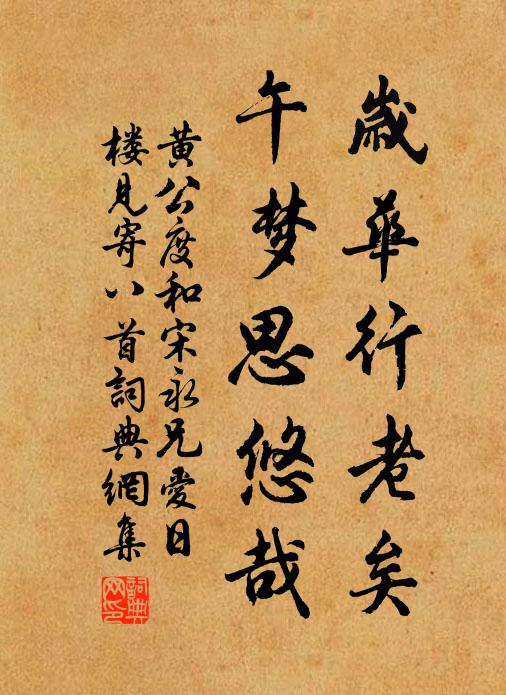 歲華行老矣
午梦思悠哉
黄公度和宋永兄愛日
楼見寄八首詞典網集
詞典网印